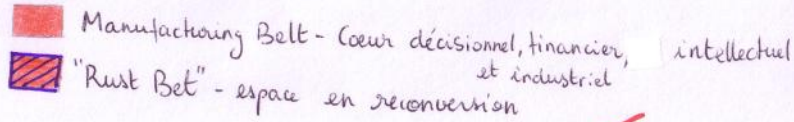 Manufacturing Belt - Coeur décisionnel, financier, intellectuel
et industriel
"Rust Bet" - espace en reconversion